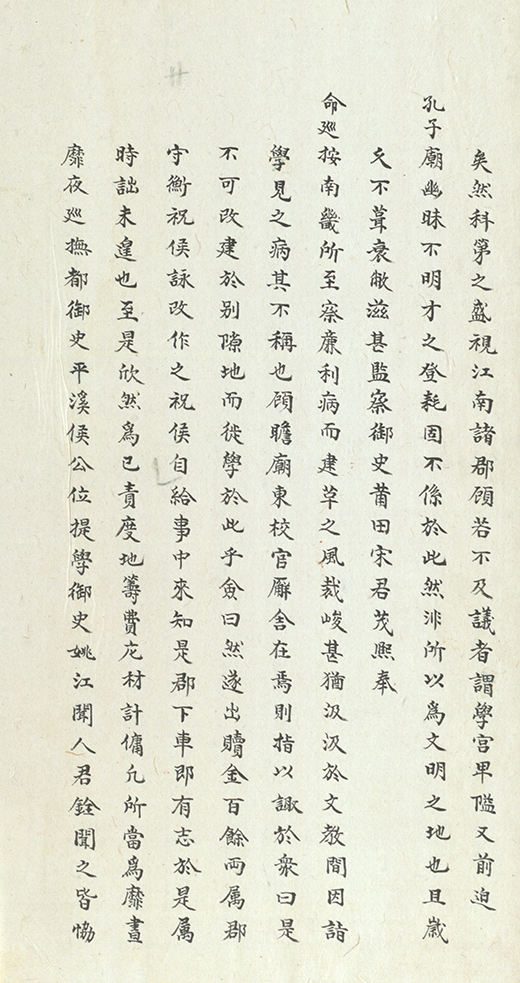 矣然科第之盛視江南諸郡顧若不及議者謂學宮卑隘又前迫
孔子廟幽昧不明才之登耗固不係於此然非所以為文明之地也且歲
久不葺衰敝滋甚監察御史莆田宋君茂熙奉
命巡按南畿所至察廉利病而建革之風裁峻甚猶汲汲於文教間因詣
學見之病其不稱也顧瞻廟東校官廨舍在焉則指以諏於衆曰是
不可改建於别隙地而徙學於此乎僉曰然遂出贖金百餘兩属郡
守衡祝侯詠改作之祝侯自給事中來知是郡下車即有志於是属
時詘未遑也至是欣然為已責度地籌費庀材計傭凢所當為靡晝
靡夜巡撫都御史平溪侯公位提學御史姚江聞人君銓聞之皆恊